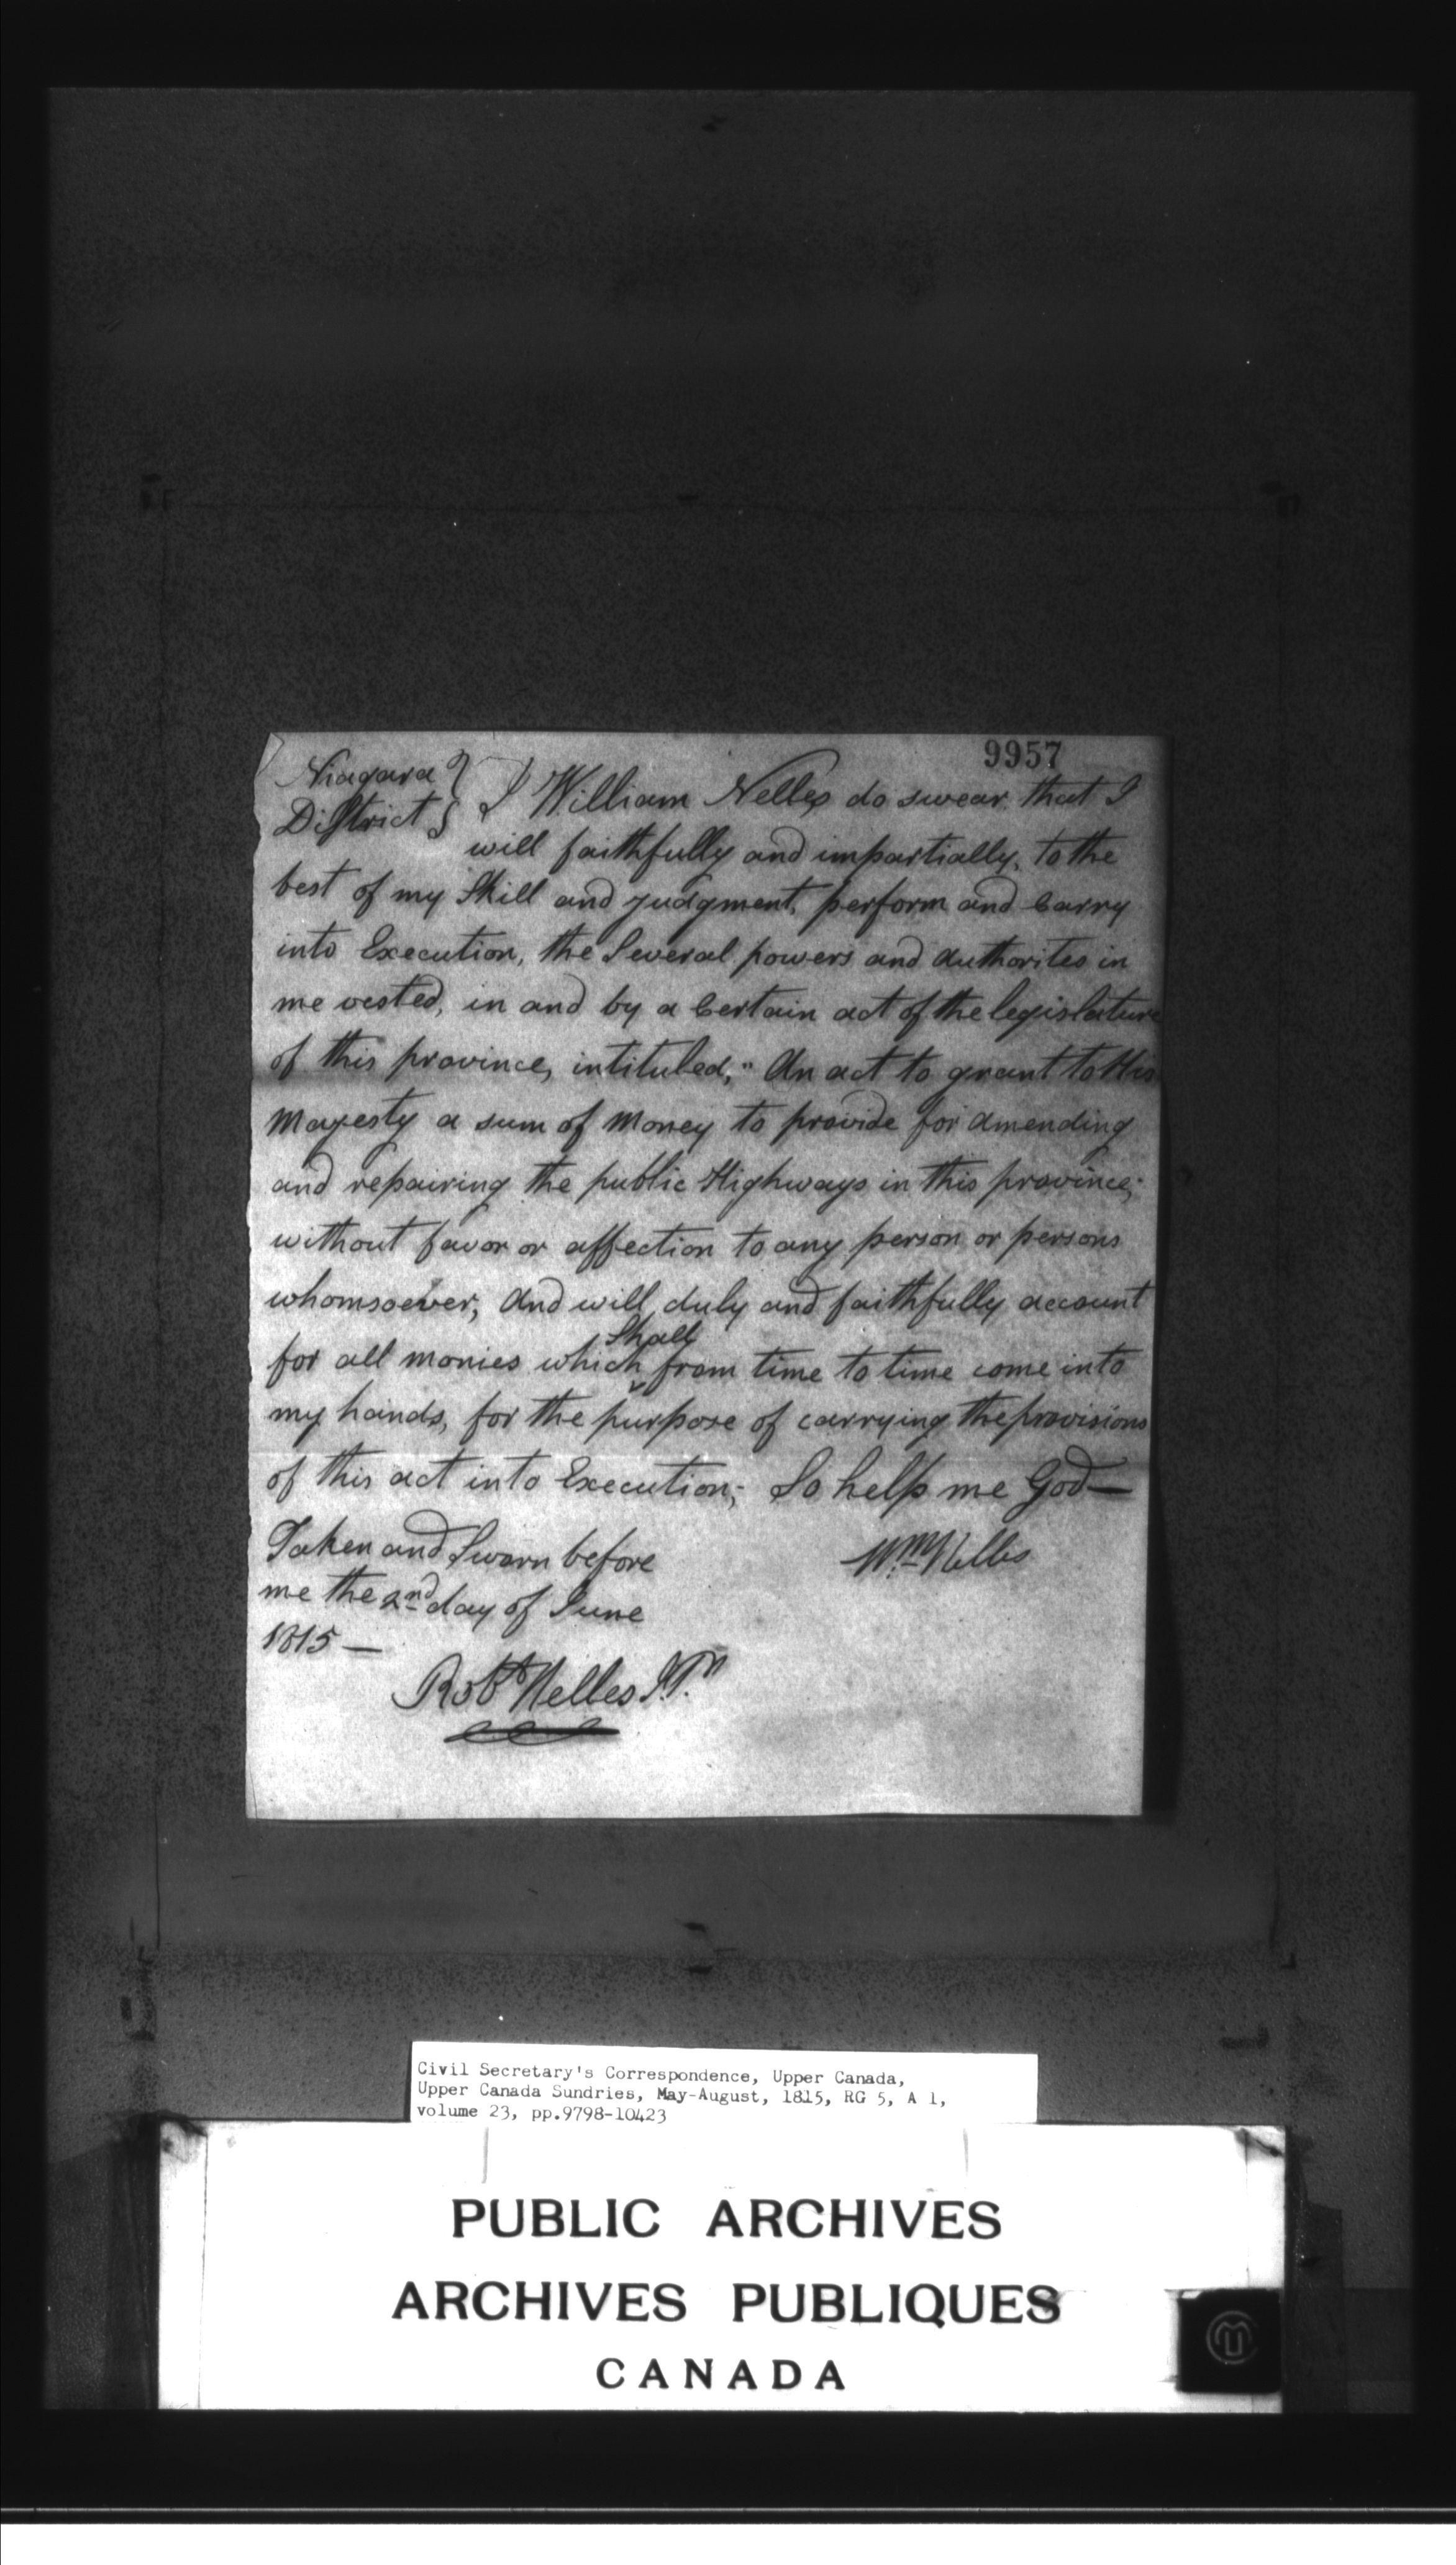 9957
Niagara
District } I William Nelles do swear, that I
will faithfully and impartially, to the
best of my Skill and judgment, perform and Carry
into Execution, the Several powers and authorites in
me vested, in and by a Certain act of the legislature
of this province, intituled, "An act to grant to His
Majesty a sum of Money to provide for amending
and repairing the public Highways in this province;
without favor or affection to any person or persons
whomsoever, And will, duly and faithfully account
Shall
for all monies which from time to time come into
my hands, for the purpose of carrying the provisions
of this act into Execution; So help me God—
Taken and Sworn before
Wm Nelles
me the 2nd day of June
1815—
Robt Nelles J.P.
Civil Secretary's Correspondence, Upper Canada,
Upper Canada Sundries, May-August, 1815, RG 5, A 1,
volume 23, pp.9798-10423
PUBLIC ARCHIVES
ARCHIVES PUBLIQUES
CANADA